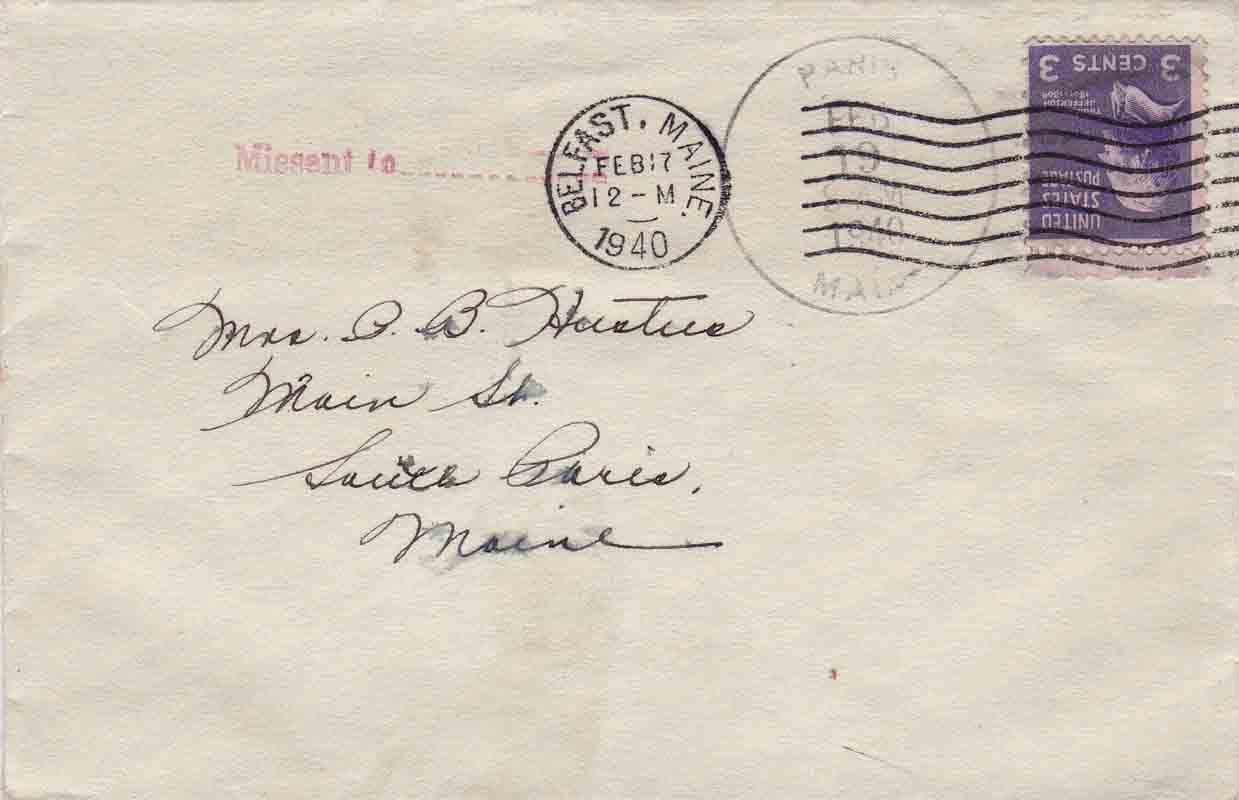 3 CENTS 3
THOMAS
JEFFERSON
1801-1809
UNITED
STATES
POSTAGE
PARIS
FEB
19
M
1940
MAINE
BELFAST, MAINE.
FEB 17
12-M
1940
Missent to
Mrs. C. B. Hustus
Main St.
South Paris,
Maine